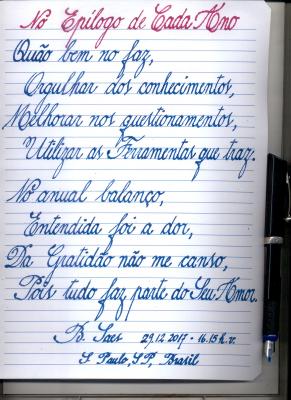 No Epílogo de Cada Ano
Quão bem no faz,
Orgulhar dos conhecimentos,
Melhorar nos questionamentos,
Utilizar as Ferramentas que traz.
No anual balanço,
Entendida foi a dor,
Da Gratidão não me canso,
Pois tudo faz parte do Seu Amor.
B. Saes 29.12.2017 - 16.15 h.v.
S. Paulo, SP, Brasil